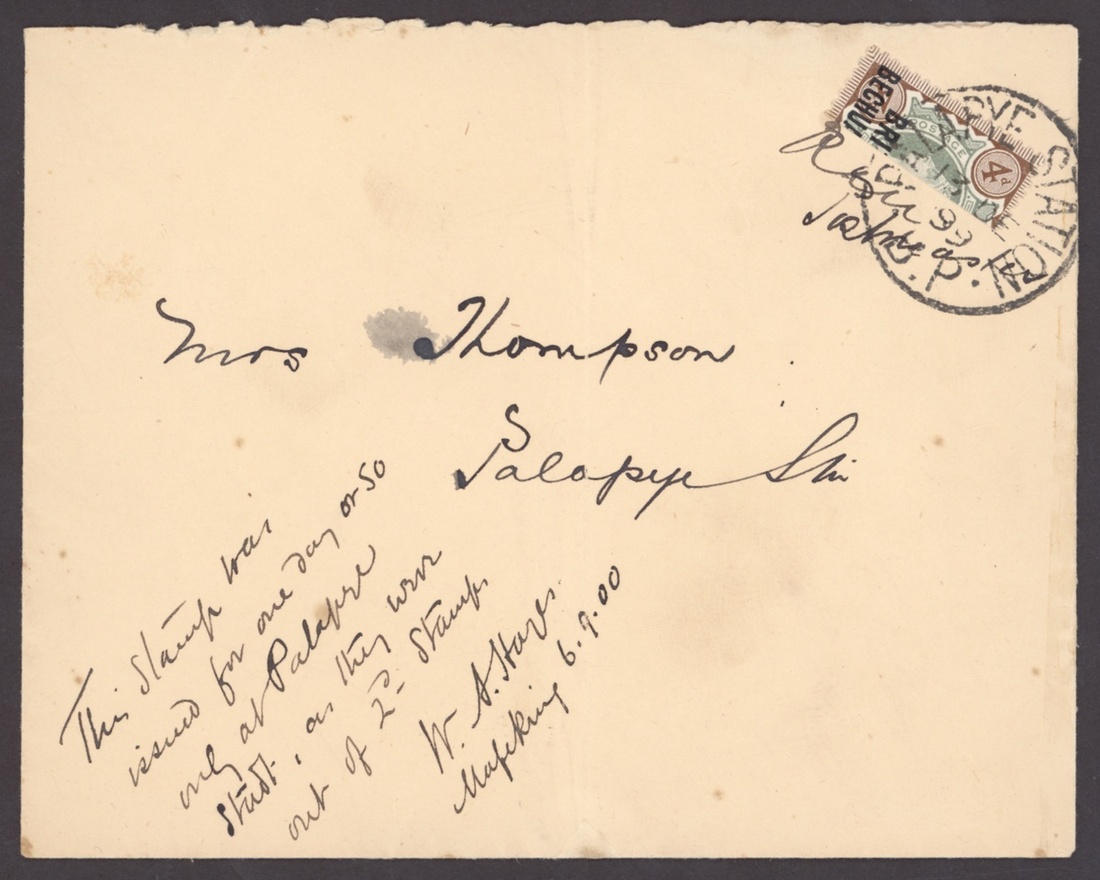 BRI
BECHU
POSTAGE
4d
PYE STATION
13
99
Mrs Thompson
Palapye Stn
This stamp was
issued for one day or so
only at Palapye
Stadt, as they were
out of 2d stamps
W. A. Hayes
Mafeking 6.9.00